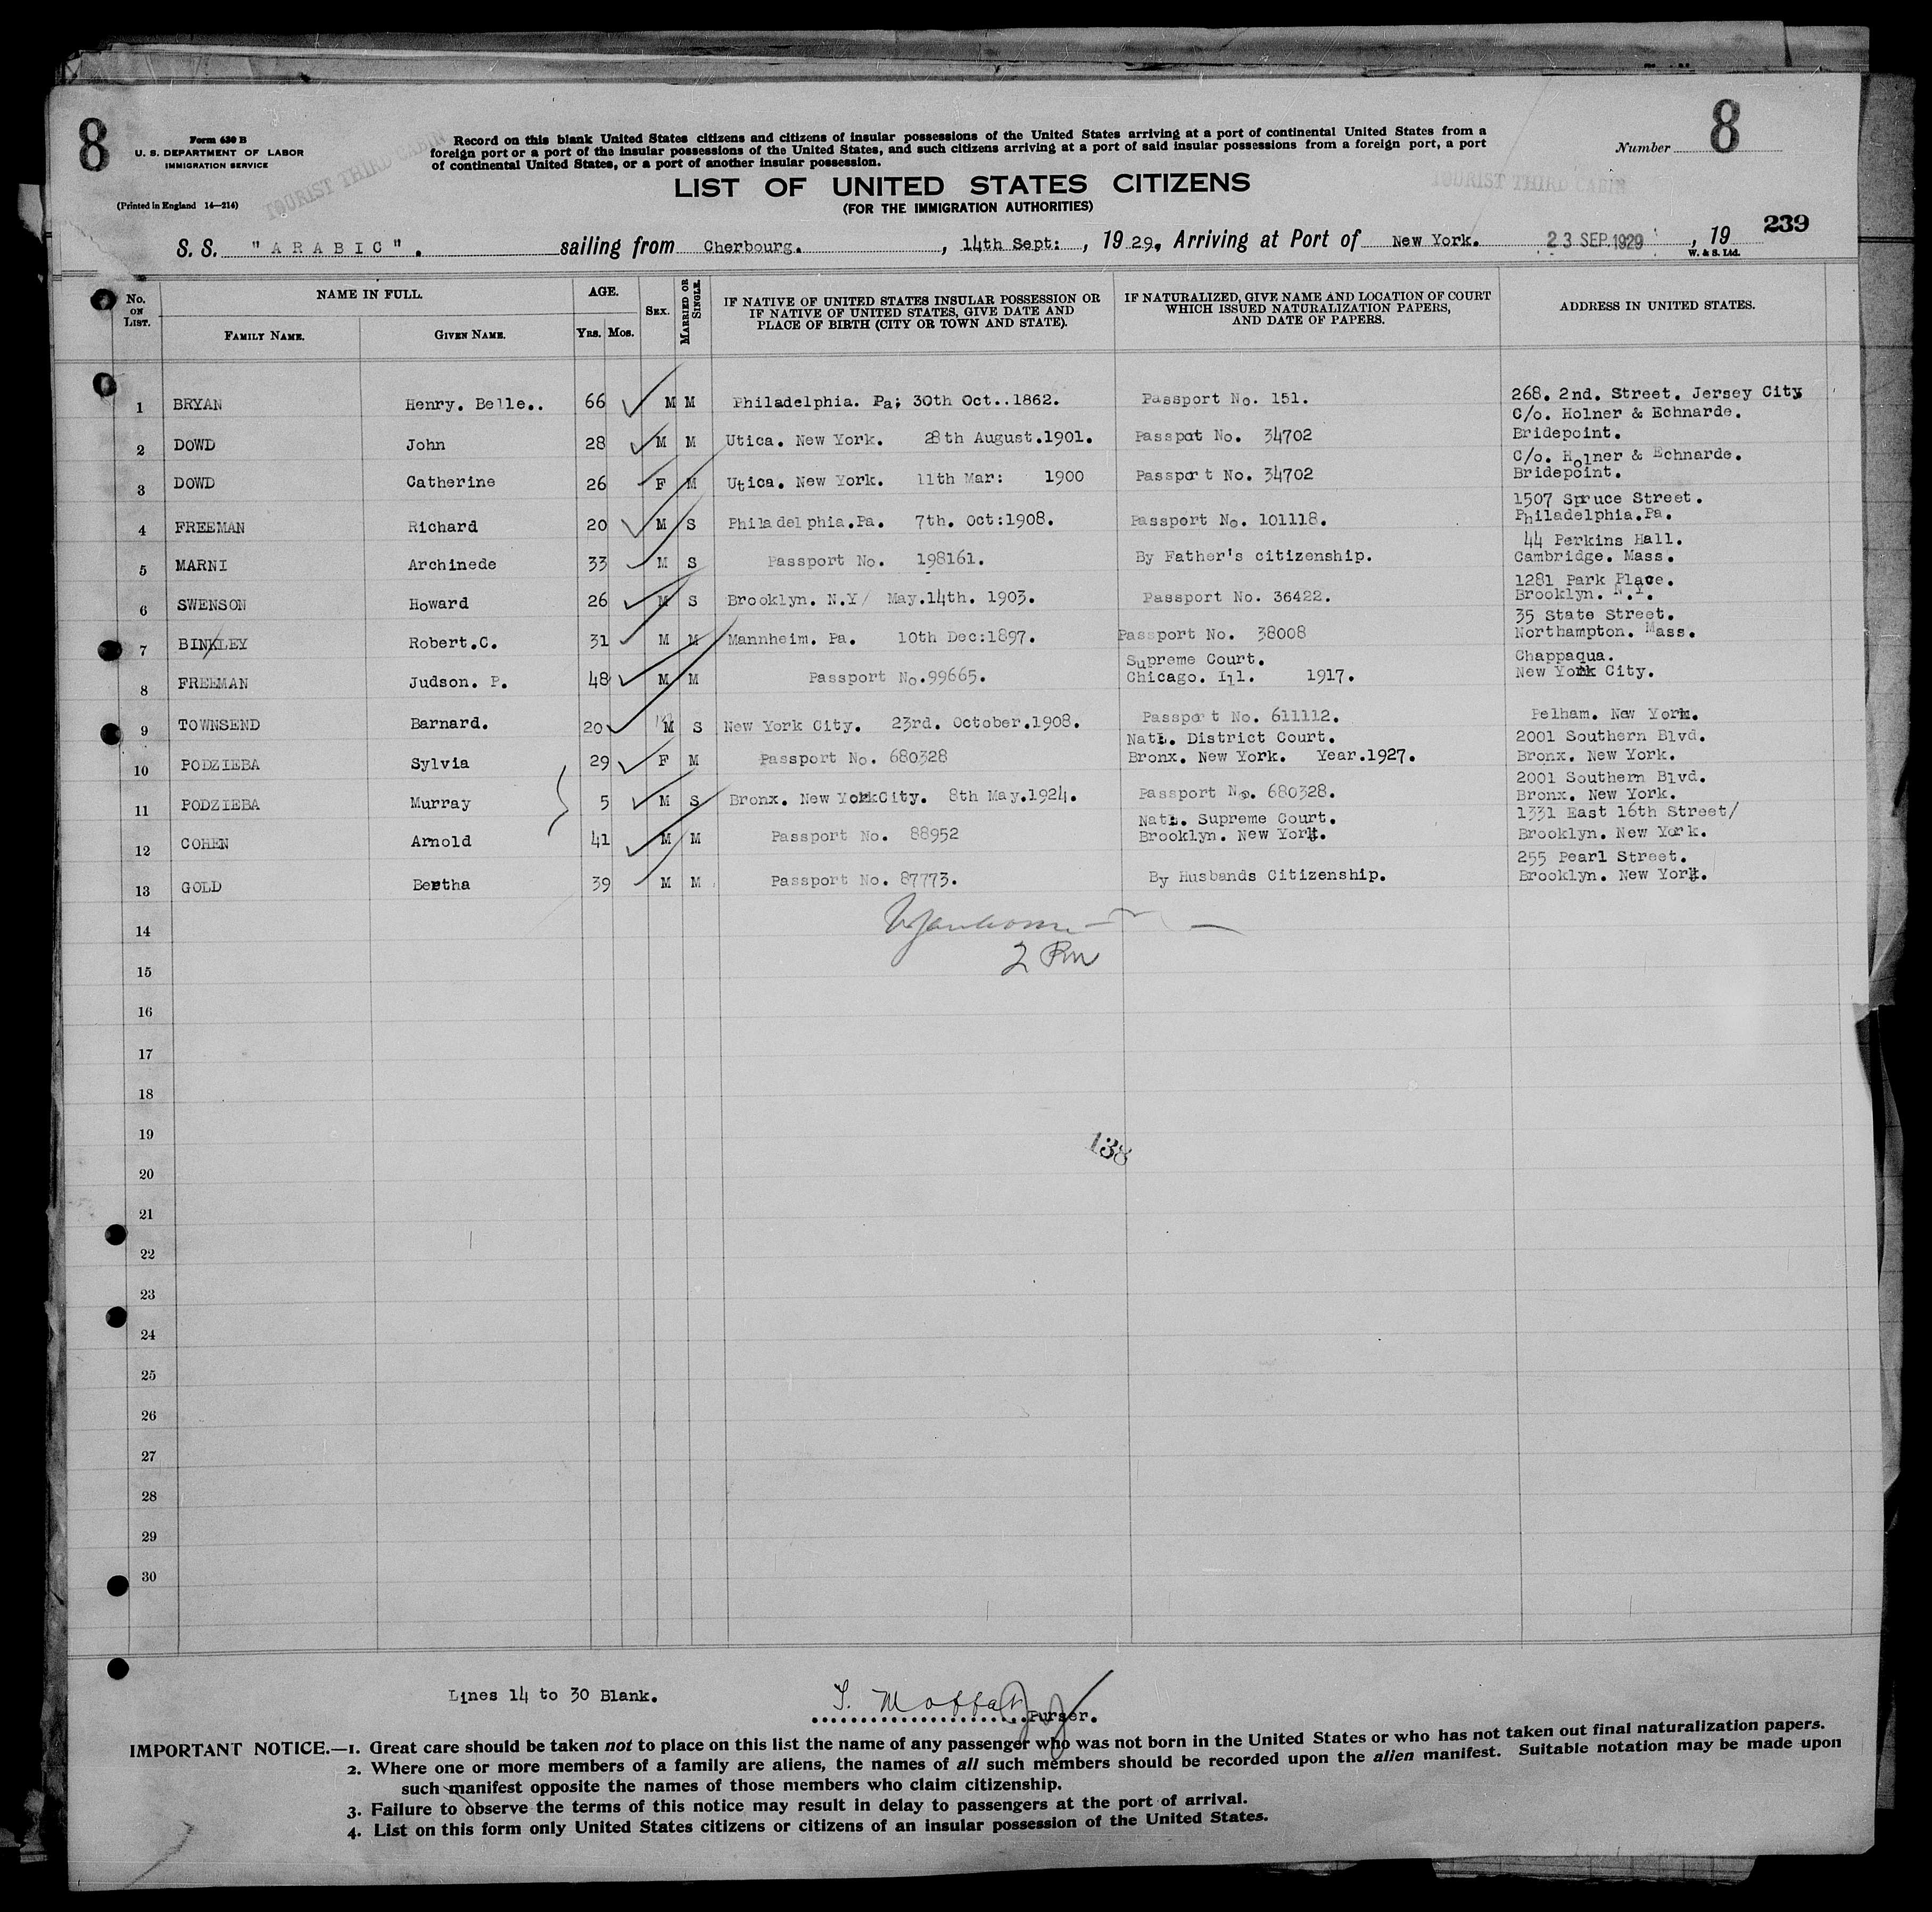 8
Form 630 B
U. S. DEPARTMENT OF LABOR
IMMIGRATION SERVICE
(Printed in England 14—214)
TOURIST THIRD CABIN
Record on this blank United States citizens and citizens of insular possessions of the United States arriving at a port of continental United States from a
foreign port or a port of the insular possessions of the United States, and such citizens arriving at a port of said insular possessions from a foreign port, a port
of continental United States, or a port of another insular possession.
LIST OF UNITED STATES CITIZENS
(FOR THE IMMIGRATION AUTHORITIES)
Number 8
TOURIST THIRD CABIN
239
S. S. "ARABIC". sailing from Cherbourg. , 14th Sept: , 1929, Arriving at Port of New York. 23 SEP 1929 , 19
W. & S. Ltd.
No. on List. NAME IN FULL. AGE. Sex. Married or Single. IF NATIVE OF UNITED STATES INSULAR POSSESSION OR IF NATIVE OF UNITED STATES, GIVE DATE AND PLACE OF BIRTH (CITY OR TOWN AND STATE). IF NATURALIZED, GIVE NAME AND LOCATION OF COURT WHICH ISSUED NATURALIZATION PAPERS, AND DATE OF PAPERS. ADDRESS IN UNITED STATES.
Family Name. Given Name. Yrs. Mos.
1 BRYAN Henry. Belle.. 66 M M Philadelphia. Pa; 30th Oct..1862. Passport No. 151. 268. 2nd. Street. Jersey City
C/o. Holner & Echnarde.
2 DOWD John 28 M M Utica. New York. 28th August.1901. Passpot No. 34702 Bridepoint.
C/o. Holner & Echnarde.
3 DOWD Catherine 26 F M Utica. New York. 11th Mar: 1900 Passport No. 34702 Bridepoint.
1507 Spruce Street.
4 FREEMAN Richard 20 M S Philadelphia.Pa. 7th. Oct:1908. Passport No. 101118. Philadelphia.Pa.
44 Perkins Hall.
5 MARNI Archinede 33 M S Passport No. 198161. By Father's citizenship. Cambridge. Mass.
1281 Park Place.
6 SWENSON Howard 26 M S Brooklyn. N.Y/ May.14th. 1903. Passport No. 36422. Brooklyn. N.Y.
35 State Street.
7 BINKLEY Robert.C. 31 M M Mannheim. Pa. 10th Dec:1897. Passport No. 38008 Northampton. Mass.
Supreme Court. Chappaqua.
8 FREEMAN Judson. P. 48 M M Passport No.99665. Chicago. Ill. 1917. New York City.
9 TOWNSEND Barnard. 20 M S New York City. 23rd. October.1908. Passport No. 611112. Pelham. New York.
Natl. District Court. 2001 Southern Blvd.
10 PODZIEBA Sylvia 29 F M Passport No. 680328 Bronx. New York. Year.1927. Bronx. New York.
2001 Southern Blvd.
11 PODZIEBA Murray 5 M S Bronx. New York City. 8th May.1924. Passport No. 680328. Bronx. New York.
Natl. Supreme Court. 1331 East 16th Street/
12 COHEN Arnold 41 M M Passport No. 88952 Brooklyn. New York. Brooklyn. New York.
255 Pearl Street.
13 GOLD Bertha 39 M M Passport No. 87773. By Husbands Citizenship. Brooklyn. New York.
14
15
2 Pm
16
17
18
19
138
20
21
22
23
24
25
26
27
28
29
30
Lines 14 to 30 Blank.
Purser.
IMPORTANT NOTICE.—1. Great care should be taken not to place on this list the name of any passenger who was not born in the United States or who has not taken out final naturalization papers.
2. Where one or more members of a family are aliens, the names of all such members should be recorded upon the alien manifest. Suitable notation may be made upon
such manifest opposite the names of those members who claim citizenship.
3. Failure to observe the terms of this notice may result in delay to passengers at the port of arrival.
4. List on this form only United States citizens or citizens of an insular possession of the United States.